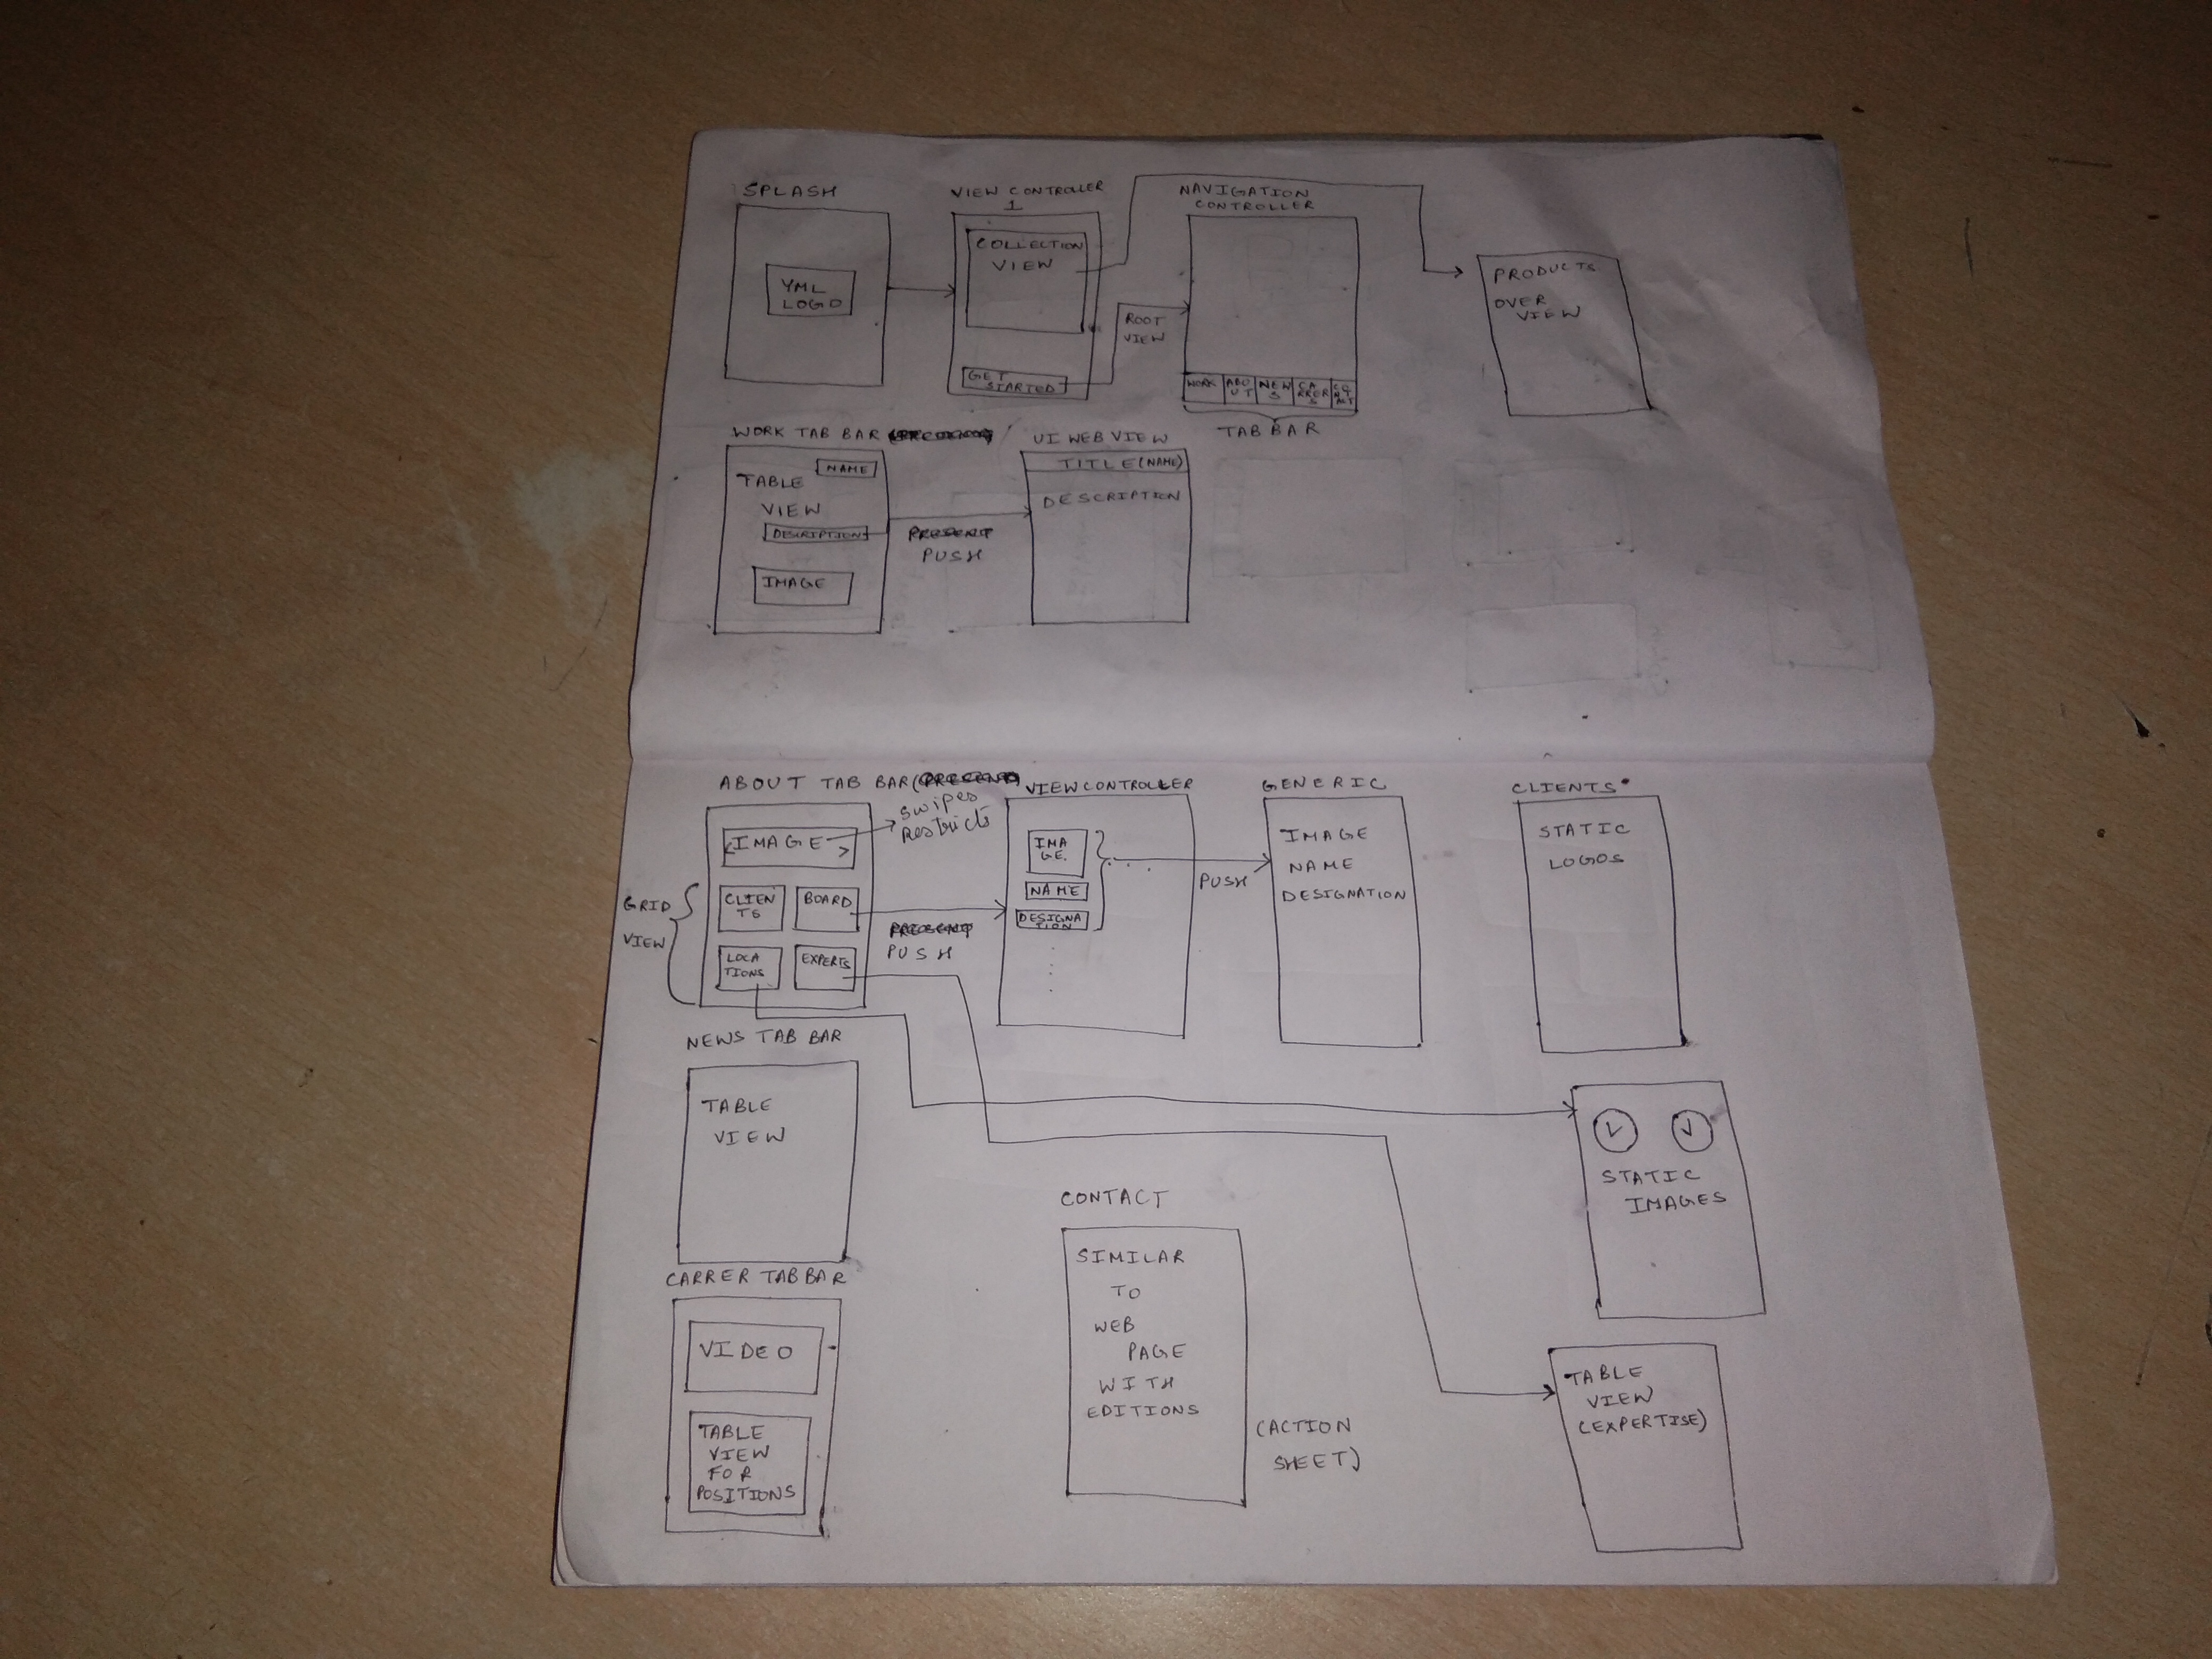 SPLASH
YML
LOGO
VIEW CONTROLLER
1
COLLECTION
VIEW
GET
STARTED
ROOT
VIEW
NAVIGATION
CONTROLLER
WORK
ABO
UT
NEW
S
CA
RRER
S
CO
NT
ACT
TAB BAR
PRODUCTS
OVER
VIEW
WORK TAB BAR
NAME
TABLE
VIEW
DESCRIPTION
IMAGE
PRESENT
PUSH
UI WEB VIEW
TITLE (NAME)
DESCRIPTION
ABOUT TAB BAR (PRESENT)
IMAGE
swipes
restricts
GRID
VIEW
CLIEN
TS
BOARD
LOCA
TIONS
EXPERTS
PRESENT
PUSH
VIEW CONTROLLER
IMA
GE.
NAME
DESIGNA
TION
PUSH
GENERIC
IMAGE
NAME
DESIGNATION
CLIENTS
STATIC
LOGOS
NEWS TAB BAR
TABLE
VIEW
STATIC
IMAGES
CARRER TAB BAR
VIDEO
TABLE
VIEW
FOR
POSITIONS
CONTACT
SIMILAR
TO
WEB
PAGE
WITH
EDITIONS
(ACTION
SHEET)
TABLE
VIEW
(EXPERTISE)